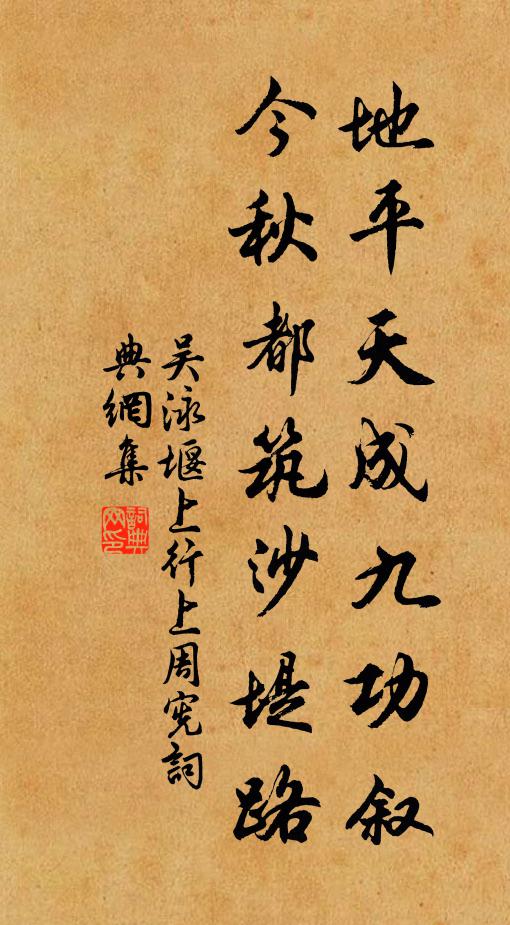 地平天成九功叙
今秋都筑沙堤路
吴泳堰上行上周宪詞
典網集
詞典